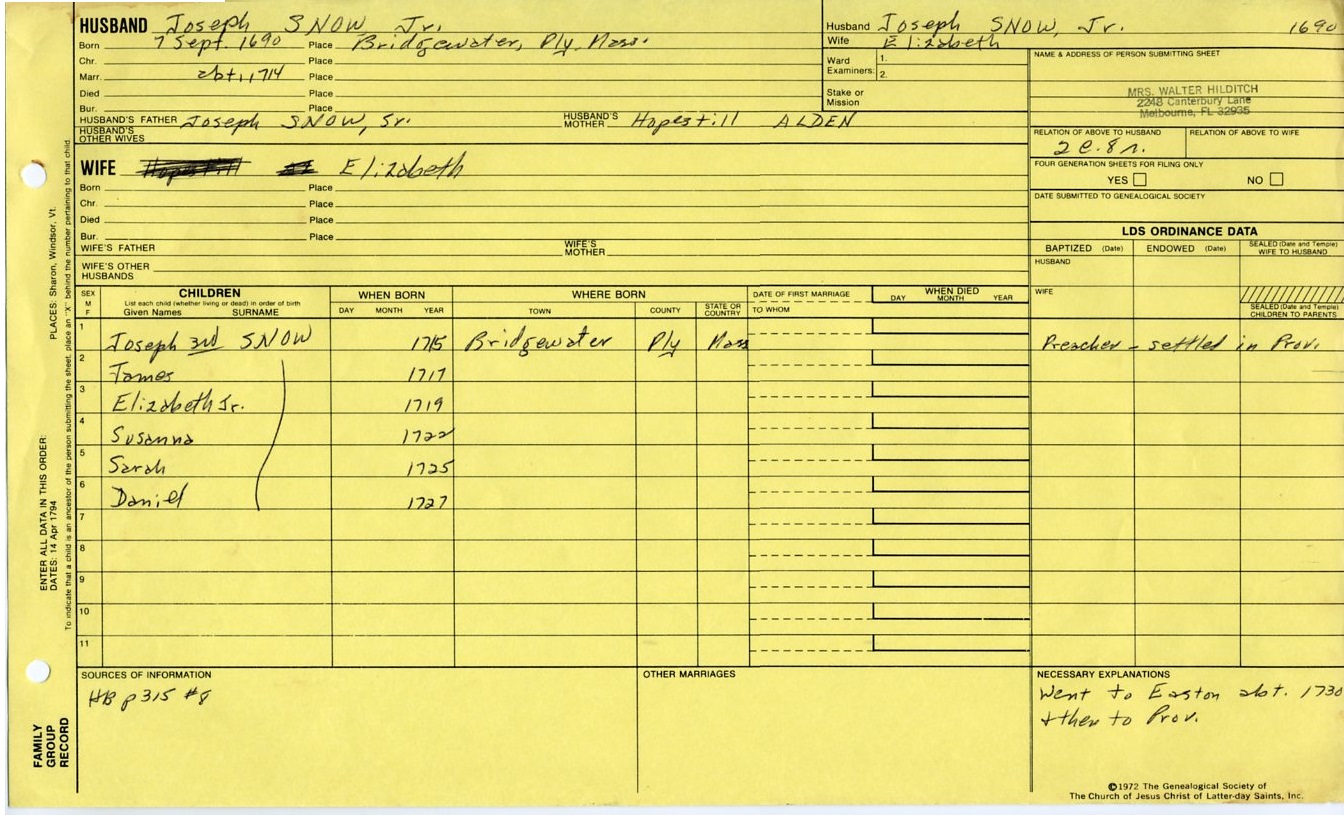 HUSBAND Joseph SNOW Jr.
Born 7 Sept. 1690 Place Bridgewater, Ply, Mass.
Chr. Place
Marr. abt. 1714 Place
Died Place
Bur. Place
HUSBAND'S FATHER Joseph SNOW, Sr. HUSBAND'S MOTHER Hopestill ALDEN
HUSBAND'S OTHER WIVES
Husband Joseph SNOW, Jr. 1690
Wife Elizabeth
Ward Examiners: 1.
2.
Stake or Mission
NAME & ADDRESS OF PERSON SUBMITTING SHEET
MRS. WALTER HILDITCH
2248 Canterbury Lane
Melbourne, FL 32935
RELATION OF ABOVE TO HUSBAND RELATION OF ABOVE TO WIFE
2c.8r.
FOUR GENERATION SHEETS FOR FILING ONLY
YES NO
DATE SUBMITTED TO GENEALOGICAL SOCIETY
WIFE Elizabeth
Born Place
Chr. Place
Died Place
Bur. Place
WIFE'S FATHER WIFE'S MOTHER
WIFE'S OTHER HUSBANDS
LDS ORDINANCE DATA
BAPTIZED (Date) ENDOWED (Date) SEALED (Date and Temple) WIFE TO HUSBAND
HUSBAND
WIFE
SEALED (Date and Temple) CHILDREN TO PARENTS
SEX M F
CHILDREN
List each child (whether living or dead) in order of birth
Given Names SURNAME
WHEN BORN
DAY MONTH YEAR
WHERE BORN
TOWN COUNTY STATE OR COUNTRY
DATE OF FIRST MARRIAGE
TO WHOM
WHEN DIED
DAY MONTH YEAR
1 Joseph 3rd SNOW 1715 Bridgewater Ply Mass Preacher - settled in Prov.
2 James 1717
3 Elizabeth Jr. 1719
4 Susanna 1722
5 Sarah 1725
6 Daniel 1727
7
8
9
10
11
SOURCES OF INFORMATION
HB p315 #8
OTHER MARRIAGES
NECESSARY EXPLANATIONS
Went to Easton abt. 1730
& then to Prov.
©1972 The Genealogical Society of
The Church of Jesus Christ of Latter-day Saints, Inc.
PLACES: Sharon, Windsor, Vt.
ENTER ALL DATA IN THIS ORDER:
DATES: 14 Apr 1794
To indicate that a child is an ancestor of the person submitting the sheet, place an "X" behind the number pertaining to that child.
FAMILY
GROUP
RECORD